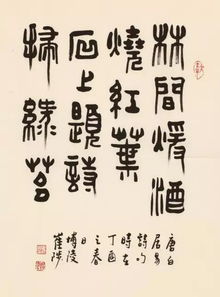 林間煖酒
燒紅葉
石上題詩
掃綠苔
唐白
居易
詩句
時在
丁酉
之春
日
博陵
崔陟